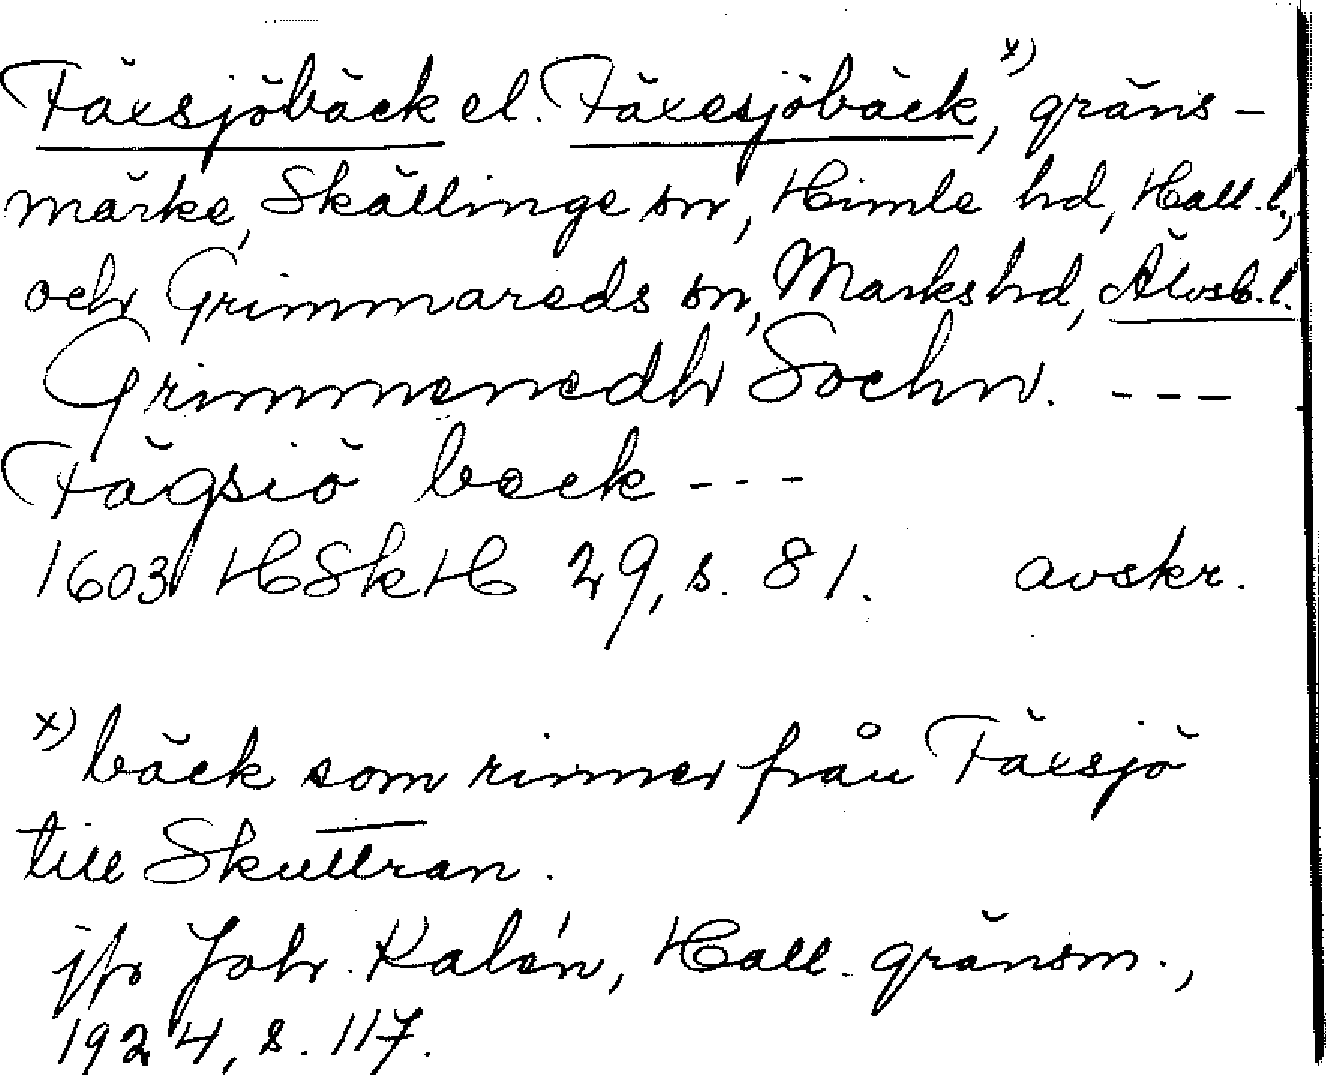 Fäxsjöbäck el. Fäxesjöbäck, x) gräns-
märke, Skällinge sn, Himle hd, Hall. l.,
och Grimmareds sn, Marks hd, Älvsb. l.
Grimmeredh Sochn. ---
Fägsiö beck ---
1603 HSkH 29, s. 81. avskr.
x) bäck som rinner från Fäxsjö
till Skuttran.
jfr Joh. Kalén, Hall. gränsm.,
1924, s. 117.